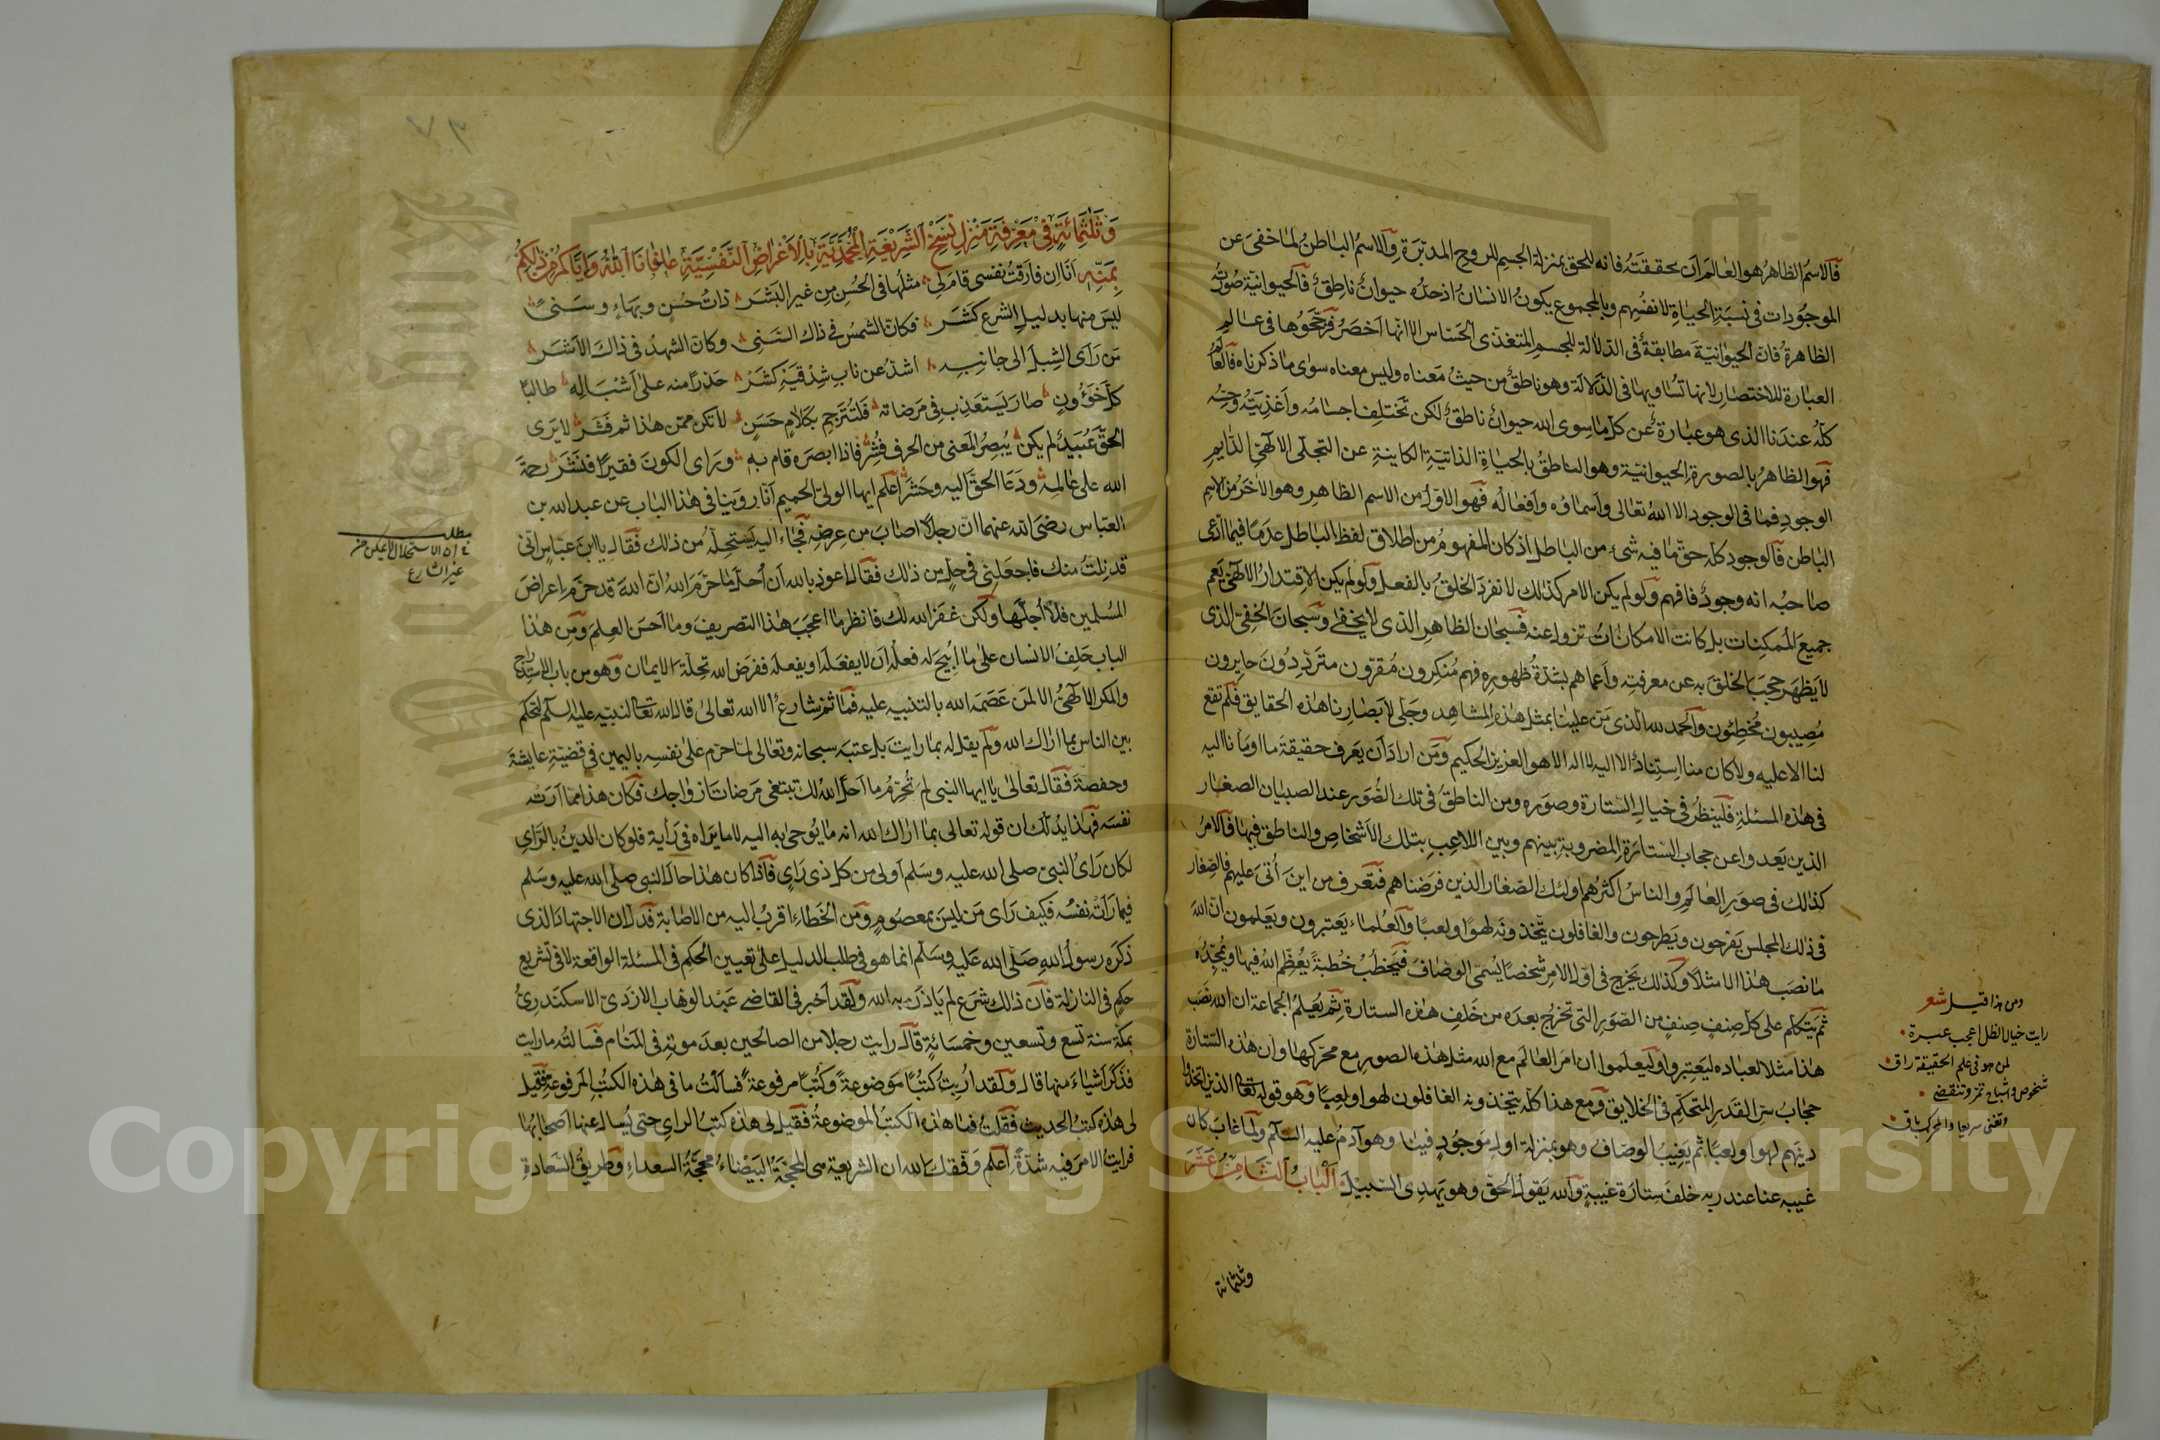 فالاسم الظاهر هو العالم ان تحققته فانه للحق بمنزلة الجسم للروح المدبرة والاسم الباطن لما خفى عن
الموجودات فى نسبة الحياة لانفسهم وبالمجموع يكون الانسان اذ حده حيوان ناطق فالحيوانية صورته
الظاهرة فان الحيوانية مطابقة فى الدلالة للجسم المتغذى الحساس الا انها اخصر فرجحوها فى عالم
العبارة للاختصار لانها تساويها فى الدلالة وهو ناطق من حيث معناه وليس معناه سوى ما ذكرناه فالعالم
كله عندنا الذى هو عبارة عن كل ما سوى الله حيوان ناطق لكن تختلف اجسامه واغذيته وحسه
فهو الظاهر بالصورة الحيوانية وهو الناطق بالحياة الذاتية الكاينة عن التجلى الالهى الدايم
الوجود فما فى الوجود الا الله تعالى واسماؤه وافعاله فهو الاول من الاسم الظاهر وهو الاخر من الاسم
الباطن فالوجود كله حق ما فيه شىء من الباطل اذ كان المفهوم من اطلاق لفظ الباطل عدما فيما ادعى
صاحبه انه وجود فافهم ولو لم يكن الامر كذلك لانفرد الخلق بالفعل ولو لم يكن الاقتدار الالهى يعم
جميع الممكنات بل كانت الامكانات تزول عنه فسبحان الظاهر الذى لا يخفى وسبحان الخفى الذى
لا يظهر حجب الخلق به عن معرفته واعماهم بشدة ظهوره فهم منكرون مقرون مترددون حايرون
مصيبون مخطئون والحمد لله الذى من علينا بمثل هذه المشاهد وجلى لابصارنا هذه الحقايق فلم تقع
لنا الا عليه ولا كان منا استناد الا اليه لا اله الا هو العزيز الحكيم ومن اراد ان يعرف حقيقة ما اومانا اليه
فى هذه المسئلة فلينظر فى خيال الستارة وصوره ومن الناطق فى تلك الصور عند الصبيان الصغار
الذين بعدوا عن حجاب الستارة المضروبة بينهم وبين اللاعب بتلك الاشخاص والناطق فيها فالامر
كذلك فى صور العالم والناس اكثرهم اولئك الصغار الذين فرضناهم فتعرف من اين أتى عليهم فالصغار
فى ذلك المجلس يفرحون ويطرحون والغافلون يتخذونه لهوا ولعبا والعلماء يعتبرون ويعلمون ان الله
ما نصب هذا الا مثلا وكذلك يخرج فى اول الامر شخصا يسمى الوصاف فيخطب خطبة يعظم الله فيها ويمجده
ثم يتكلم على كل صنف صنف من الصور التى تخرج بعده من خلف هذه الستارة ثم يعلم الجماعة ان الله نصب
هذا مثلا لعباده ليعتبروا وليعلموا ان امر العالم مع الله مثل هذه الصور مع محركها وان هذه الستارة
حجاب سر القدر المتحكم فى الخلايق ومع هذا كله يتخذونه الغافلون لهوا ولعبا وهو قوله تعالى الذين اتخذوا
دينهم لهوا ولعبا ثم يغيب الوصاف وهو بمنزلة اول موجود فينا وهو آدم عليه السلام ولما غاب كان
غيبه عنا عند ربه خلف ستارة غيبه والله يقول الحق وهو يهدى السبيل الباب الثامن عشر
وثلثمائة
ومن هذا قيل شعر
رايت خيال الظل اعجب عبرة
لمن هو فى علم الحقيقة راق
شخوص واشباح تمر وتنقضى
وتفنى سريعا والمحرك باق
وثلثمائة فى معرفة منزل نسخ الشريعة المحمدية بالاغراض النفسية عافانا الله واياكم من ذلكم
بمنه انا ان فارقت نفسى قام لى مثلها فى الحسن من غير البشر ذات حسن وبهاء وسنى
ليس منها بدليل الشرع كشر فكان الشمس فى ذاك السنى وكان الشهد فى ذاك الاشر
من راى الشبل الى جانبه اشد عن ناب شدقيه كشر حذرا منه على اشباله طالبا
كل خؤون صار ليستعذب فى مرضاته فلتترجم بكلام حسن لا تكن ممن هذا ثم فشر لا يرى
الحق عبيد لم يكن يبصر المعنى من الحرف فشر فاذا ابصره قام به وراى الكون فقيرا فنشر رحمة
الله على عالمه ودعا الحق اليه وحشر اعلم ايها الولى الحميم انا روينا فى هذا الباب عن عبد الله بن
العباس رضى الله عنهما ان رجلا اصاب من عرضه فجاء اليه يستحله من ذلك فقال يا ابن عباس انى
قد نلت منك فاجعلنى فى حل من ذلك فقال اعوذ بالله ان أحل ما حرم الله ان الله قد حرم اعراض
المسلمين فلا أحلها ولكن غفر الله لك فانظر ما اعجب هذا التصريف وما احسن العلم ومن هذا
الباب حلف الانسان على ما ابيح له فعله ان لا يفعله او يفعله ففرض الله تحلة الايمان وهو من باب الاستدراج
والمكر الالهى الا لمن عصمه الله بالتنبيه عليه فما ثم شارع الا الله تعالى قال الله تعالى لنبيه عليه السلم لتحكم
بين الناس بما اراك الله ولم يقل له بما رايت بل عتبه سبحانه وتعالى لما حرم على نفسه باليمين فى قضية عايشة
وحفصة فقال تعالى يا ايها النبى لم تحرم ما احل الله لك تبتغى مرضات ازواجك فكان هذا مما ارته
نفسه فهذا يدلك ان قوله تعالى بما اراك الله انه ما يوحى به اليه لا ما يراه فى رايه فلو كان الدين بالراى
لكان راى النبى صلى الله عليه وسلم اولى من كل ذى راى فاذا كان هذا حال النبى صلى الله عليه وسلم
فيما راته نفسه فكيف راى من ليس بمعصوم ومن الخطاء اقرب اليه من الاصابة فدل ان الاجتهاد الذى
ذكره رسول الله صلى الله عليه وسلم انما هو فى طلب الدليل على تعيين الحكم فى المسئلة الواقعة لا فى تشريع
حكم فى النازلة فان ذلك شرع لم ياذن به الله ولقد اخبرنى القاضى عبد الوهاب الازدى الاسكندرى
بمكة سنة تسع وتسعين وخمسمائة قال رايت رجلا من الصالحين بعد موته فى المنام فسالته ما رايت
فذكر اشياء منها قال ولقد اريت كتبا موضوعة وكتبا مرفوعة فسالت ما فى هذه الكتب المرفوعة فقيل
لى هذه كتب الحديث فقلت فما هذه الكتب الموضوعة فقيل لى هذه كتب الراى حتى يسال عنها اصحابها
فرايت الامر فيه شدة اعلم وفقك الله ان الشريعة هى المحجة البيضاء محجة السعداء وطريق السعادة
مطلب
غير الشارع